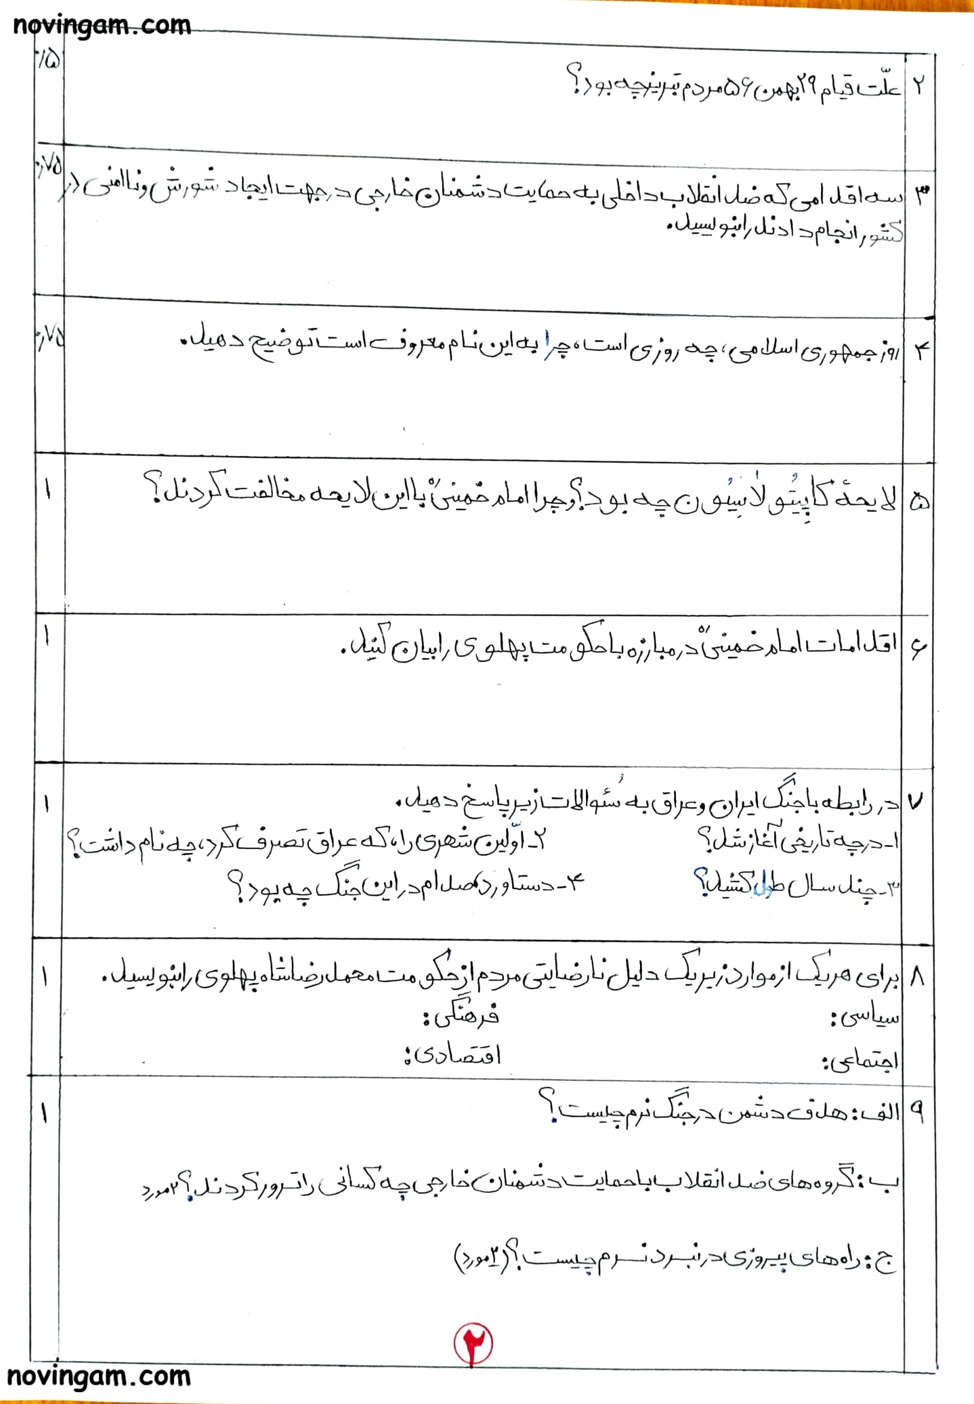 novingam.com
۲ علّت قیام ۲۹ بهمن ۵۶ مردم تبریز چه بود؟ ۰/۵
۳ سه اقدامی که ضد انقلاب داخلی به حمایت دشمنان خارجی در جهت ایجاد شورش و ناامنی در ۰/۷۵
کشور انجام دادند را بنویسید.
۴ روز جمهوری اسلامی، چه روزی است، چرا به این نام معروف است توضیح دهید. ۰/۷۵
۵ لایحهٔ کاپیتولاسیون چه بود؟ و چرا امام خمینیؒ با این لایحه مخالفت کردند؟ ۱
۶ اقدامات امام خمینیؒ در مبارزه با حکومت پهلوی را بیان کنید. ۱
۷ در رابطه با جنگ ایران و عراق به سُئوالات زیر پاسخ دهید. ۱
۱- در چه تاریخی آغاز شد؟ ۲- اوّلین شهری را، که عراق تصرف کرد، چه نام داشت؟
۳- چند سال طول کشید؟ ۴- دستاورد صدام در این جنگ چه بود؟
۸ برای هر یک از موارد زیر یک دلیل نارضایتی مردم از حکومت محمدرضاشاه پهلوی را بنویسید. ۱
سیاسی: فرهنگی:
اجتماعی: اقتصادی:
۹ الف: هدف دشمن در جنگ نرم چیست؟ ۱
ب: گروه‌های ضد انقلاب با حمایت دشمنان خارجی چه کسانی را ترور کردند؟ ۲مورد
ج: راه‌های پیروزی در نبرد نرم چیست؟ (۲مورد)
۲
novingam.com